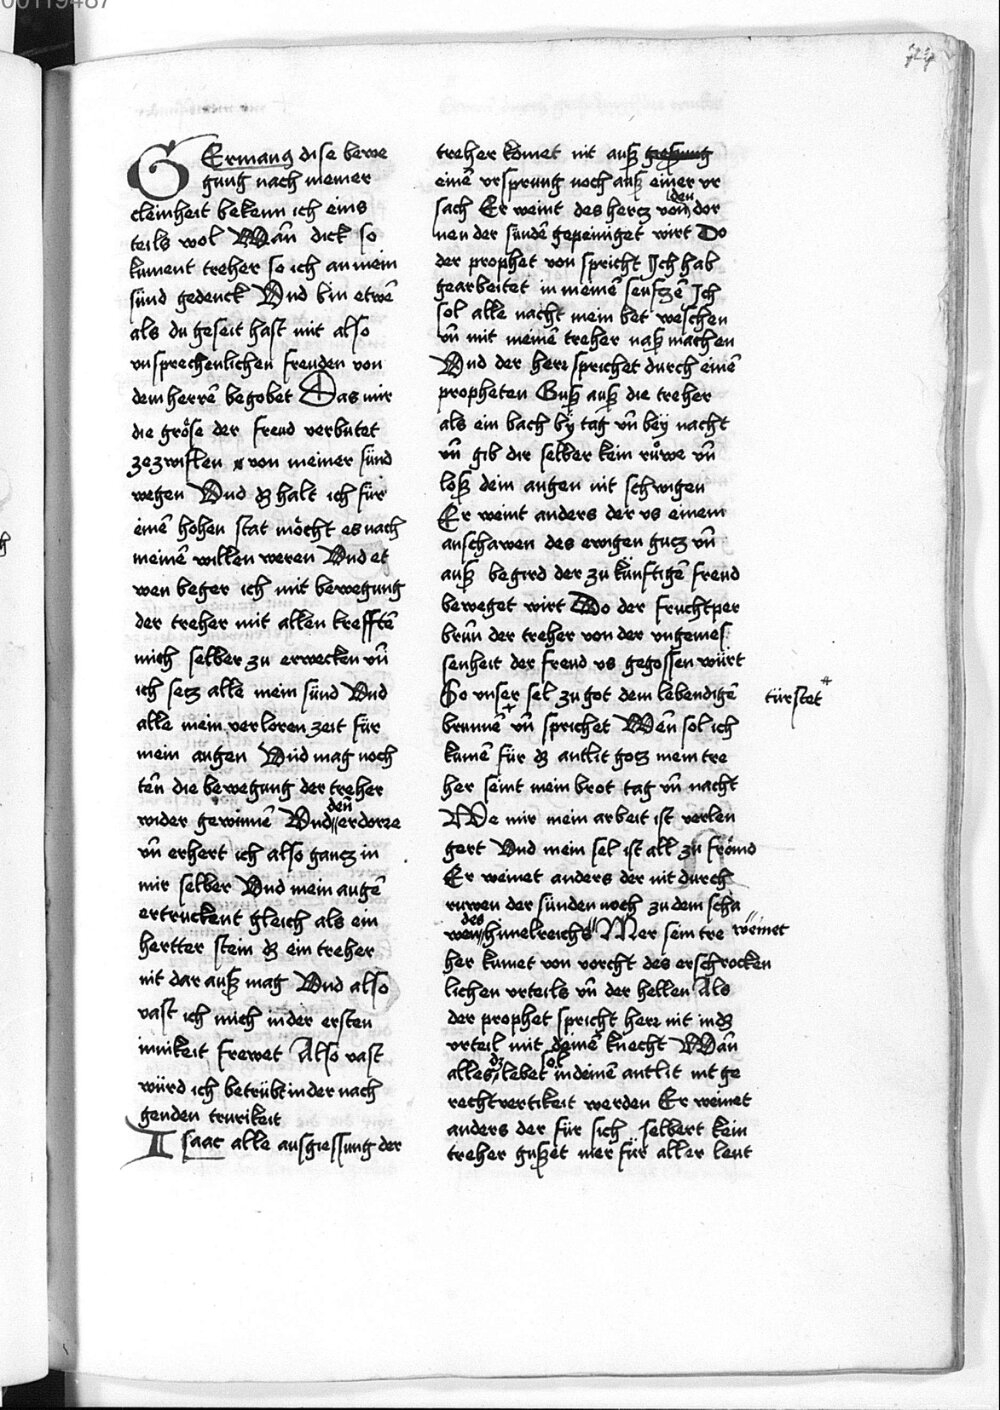 GErmanꝰ dise bewe
gung nach meiner
cleinheit bekenn ich eins
teils wol Wañ dick so
kument treher so ich an mein
sünd gedenck Vnd bin etwē
als du geseit hast mit also
vnsprechenlichen freuden von
dem herrē begobet Das mir
die gröse der freud verbutet
zezwiflen von meiner sünd
wegen Vnd dz halt ich für
einē hohen stat möcht es nach
meinē willen weren Vnd et
wen beger ich mit bewegung
der treher mit allen krefftē
mich selber zu erwecken vñ
ich setz alle mein sünd Vnd
alle mein verloren zeit für
mein augen Vnd mag noch
tēn die bewegung der treher
wider gewinnē Vnd den erdorre
vñ erhert ich also gantz in
mir selber Vnd mein augē
ertruckent gleich als ein
hertter stein dz ein treher
nit dar auß mag Vnd also
vast ich mich in der ersten
innikeit frewet Also vast
würd ich betrübt in der nach
genden trurikeit
Isaac alle ausgiessung der
treher kömet nit auß
einē vrsprung noch auß einer vr
sach Er weint des hertz von den dor
nen der sündē gepeiniget wirt Do
der prophet von spricht Ich hab
gearbeitet in meinē seüftzē Ich
sol alle nacht mein bet weschen
vñ mit meinē treher naß machen
Vnd der herr sprichet durch einē
propheten Guß auß die treher
als ein bach bÿ tag vñ beÿ nacht
vñ gib dir selber kein růwe vñ
loß dein augen nit schwigen
Er weint anders der vs einem
anschawen des ewigen gutz vñ
auß begird der zu künftigē freud
beweget wirt Do der fruchtper
brun der treher von der vngemes
senheit der freud vs gegossen würt
So vnser sel zu got dem lebendigē
türstet
brunnē vñ sprichet Wēn sol ich
kumē für dz antlit gotz mein tre
her seint mein brot tag vñ nacht
We mir mein arbeit ist verlen
gert Vnd mein sel ist all zu frömd
Er weinet anders der nit durch
ruwen der sünden noch zu dem scha
wen des himelreichs weinet Mer sein tre
her kumet von vorcht des erschrocken
lichen vrteils vñ der hellen Als
der prophet spricht herr nit in dz
vrteil mit deinē knecht Wañ
alles dz lebet sol in deinē antlit nit ge
rechtvertikeit werden Er weinet
anders der für sich selbert kein
treher gußet mer für aller leut